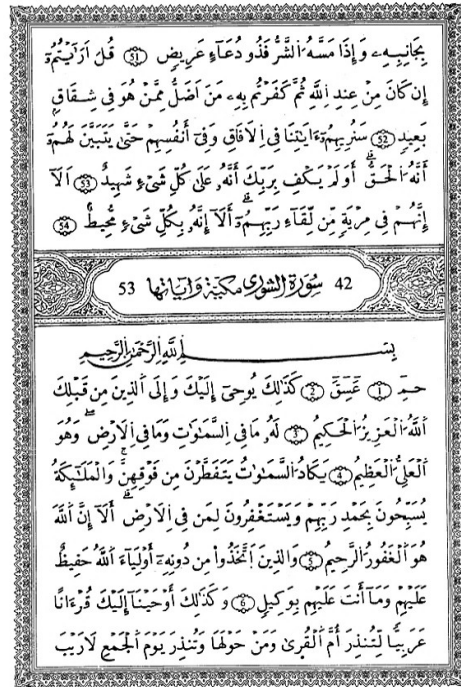 بِجَانِبِهِۦ وَإِذَا مَسَّهُ اُ۬لشَّرُّ فَذُو دُعَآءٍ عَرِيضٖ 51 قُلَ اَرَٰٓيْتُمُۥٓ
إِن كَانَ مِنْ عِندِ اِ۬للَّهِ ثُمَّ كَفَرْتُم بِهِۦ مَنَ اَضَلُّ مِمَّنْ هُوَ فِى شِقَاقِۢ
بَعِيدٖ 52 سَنُرِيهِمُۥٓ ءَايَٰتِنَا فِى اِ۬لَافَاقِ وَفِىٓ أَنفُسِهِمْ حَتَّىٰ يَتَبَيَّنَ لَهُمُۥٓ
أَنَّهُ اُ۬لْحَقُّۖ أَوَلَمْ يَكْفِ بِرَبِّكَ أَنَّهُۥ عَلَىٰ كُلِّ شَىْءٖ شَهِيدٌ 53 اَلَآ
إِنَّهُمْ فِى مِرْيَةٖ مِّن لِّقَآءِ رَبِّهِمُۥٓۖ أَلَآ إِنَّهُۥ بِكُلِّ شَىْءٖ مُّحِيطٌۢ 54
42 سُورَةُ الشُّورَىٰ مَكِّيَّة وَءَايَاتُهَا 53
بِسْمِ اِ۬للَّهِ اِ۬لرَّحْمَٰنِ اِ۬لرَّحِيمِ
حمٓ 1 عٓسٓقٓ 2 كَذَٰلِكَ يُوحِىٓ إِلَيْكَ وَإِلَى اَ۬لذِينَ مِن قَبْلِكَ
اَ۬للَّهُ اُ۬لْعَزِيزُ اُ۬لْحَكِيمُ 3 لَهُۥ مَا فِى اِ۬لسَّمَٰوَٰتِ وَمَا فِى اِ۬لَارْضِۖ وَهُوَ
اَ۬لْعَلِىُّ اُ۬لْعَظِيمُ 4 يَكَادُ اُ۬لسَّمَٰوَٰتُ يَتَفَطَّرْنَ مِن فَوْقِهِنَّۖ وَالْمَلَٰٓئِكَةُ
يُسَبِّحُونَ بِحَمْدِ رَبِّهِمْ وَيَسْتَغْفِرُونَ لِمَن فِى اِ۬لَارْضِۖ أَلَآ إِنَّ اَ۬للَّهَ
هُوَ اَ۬لْغَفُورُ اُ۬لرَّحِيمُ 5 وَالذِينَ اَ۪تَّخَذُواْ مِن دُونِهِۦٓ أَوْلِيَآءَ اَ۬للَّهُ حَفِيظٌ
عَلَيْهِمْ وَمَآ أَنتَ عَلَيْهِم بِوَكِيلٖ 6 وَكَذَٰلِكَ أَوْحَيْنَآ إِلَيْكَ قُرْءَاناً
عَرَبِيّاٗ لِّتُنذِرَ أُمَّ اَ۬لْقُرَىٰ وَمَنْ حَوْلَهَا وَتُنذِرَ يَوْمَ اَ۬لْجَمْعِ لَا رَيْبَ